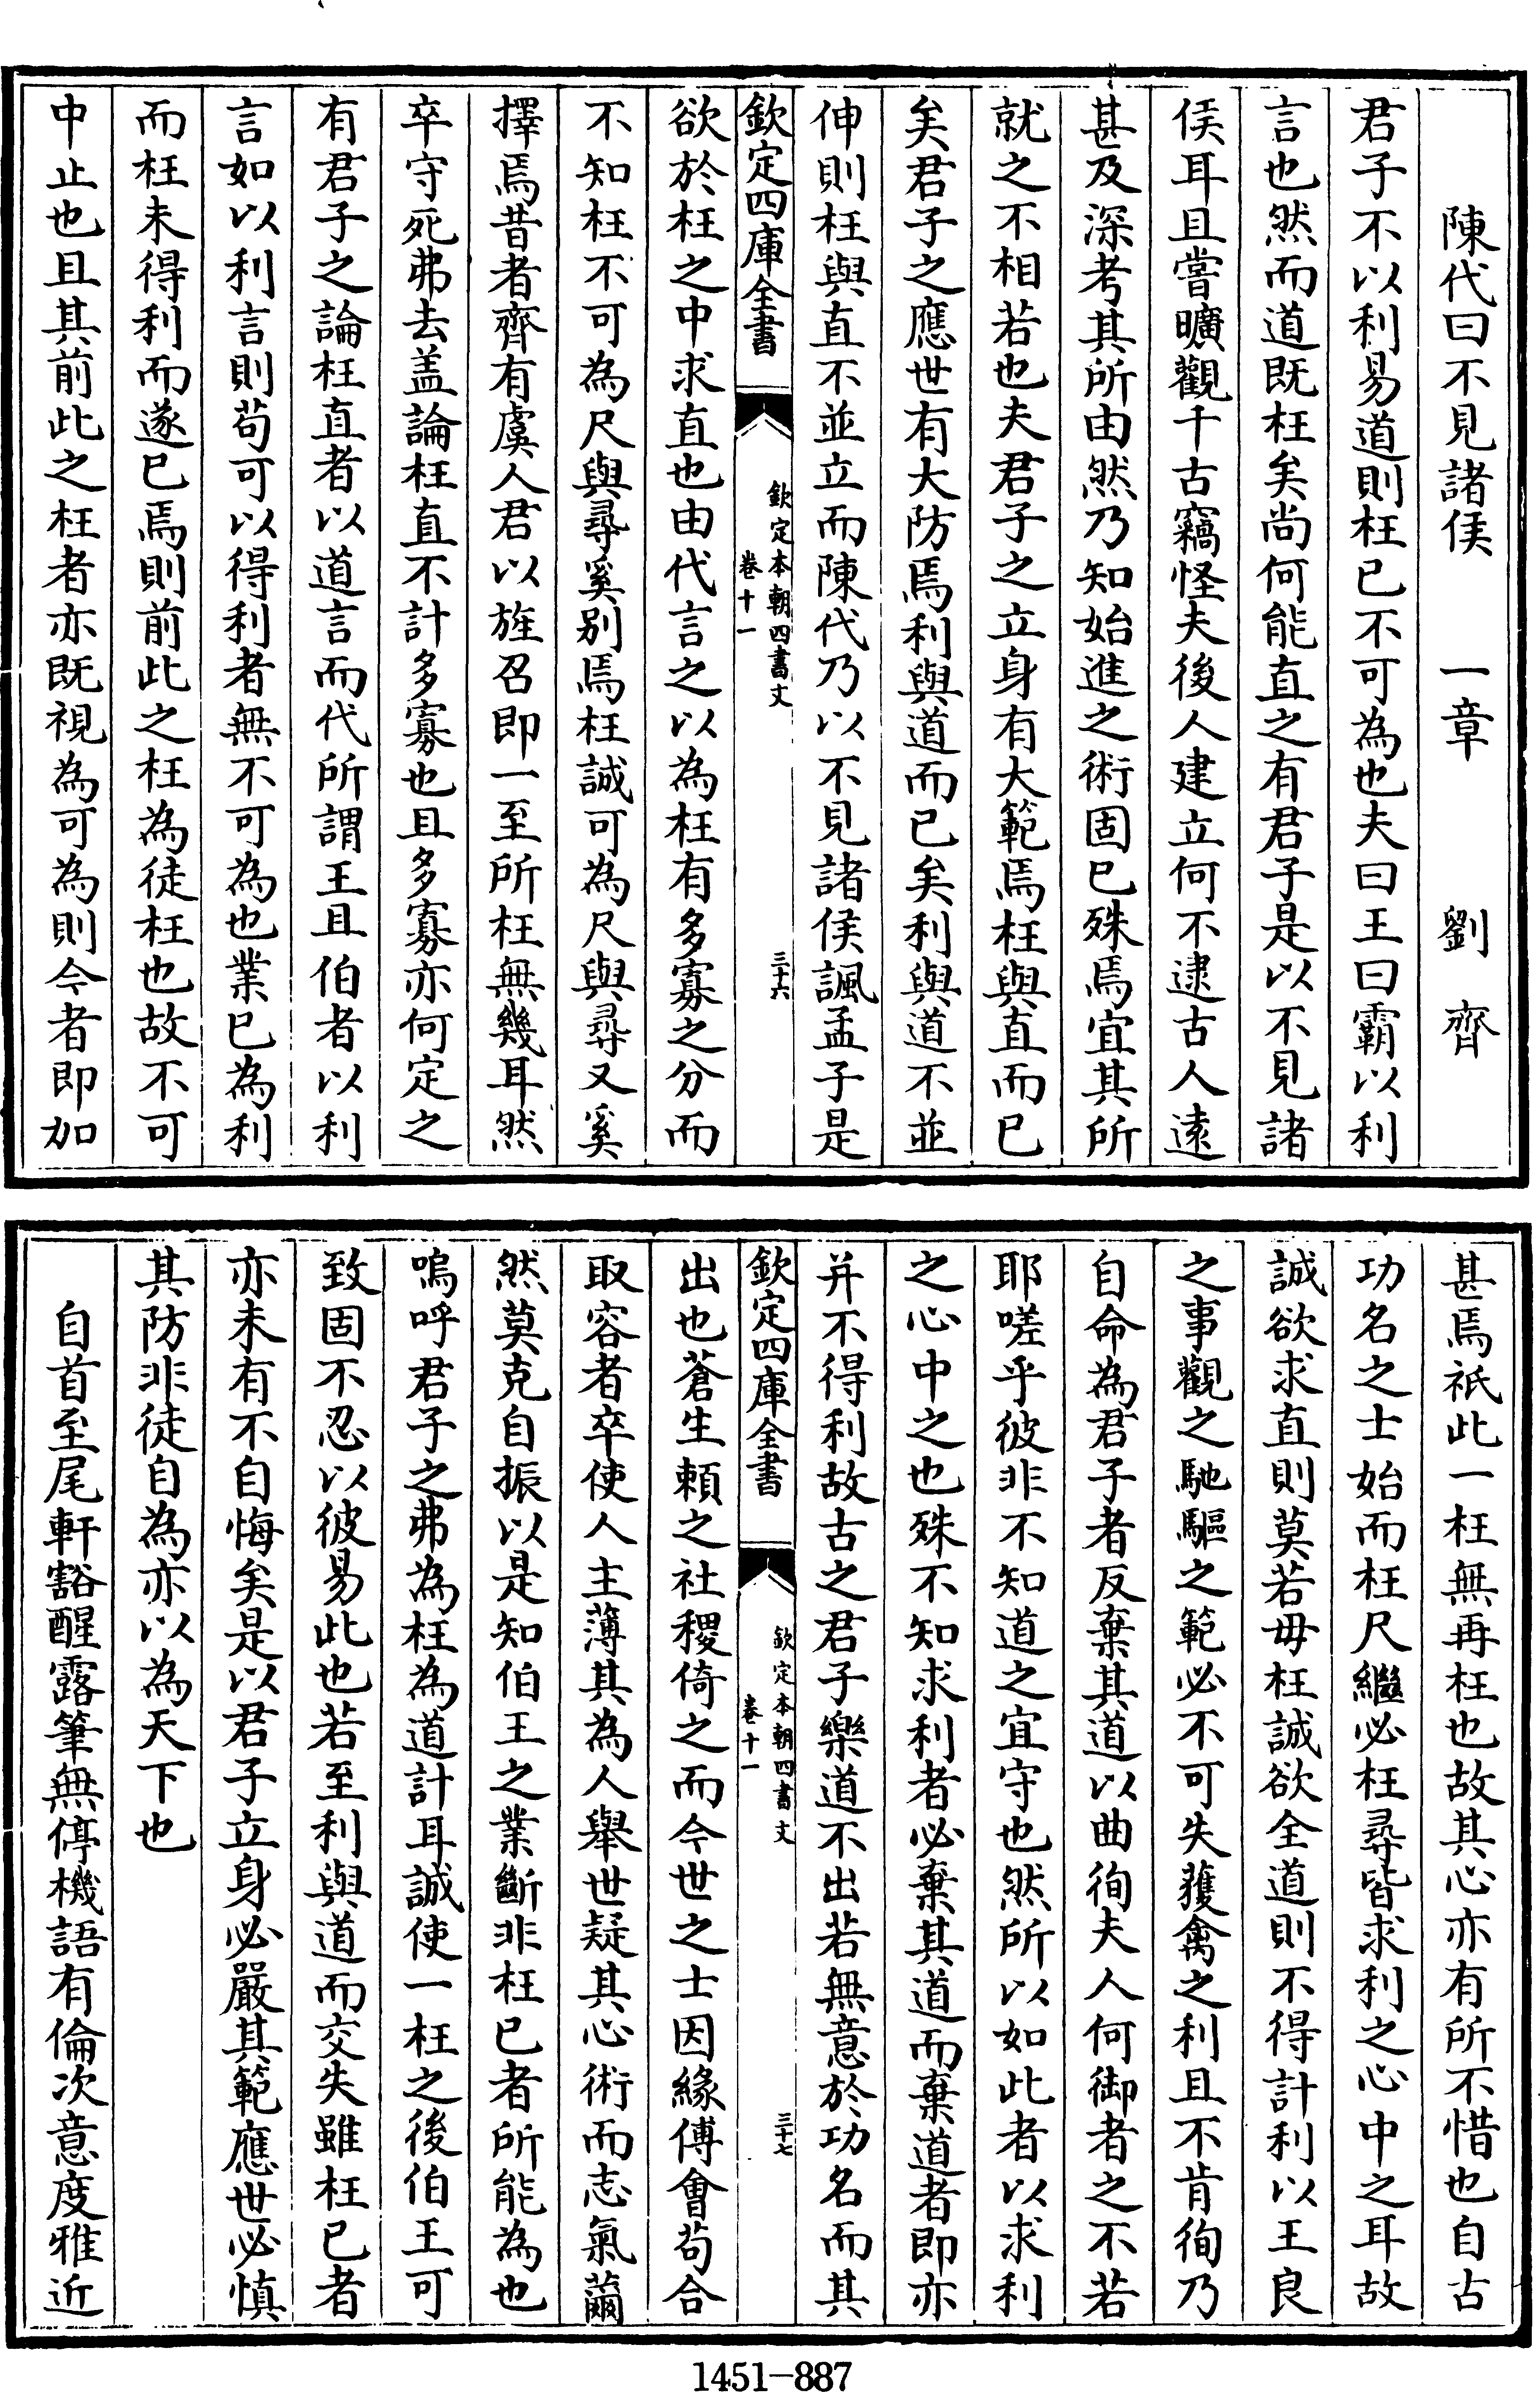 陳代曰不見諸侯　一章　劉　齊
君子不以利易道則枉已不可為也夫曰王曰霸以利
言也然而道既枉矣尚何能直之有君子是以不見諸
侯耳且嘗曠觀千古竊怪夫後人建立何不逮古人遠
甚及深考其所由然乃知始進之術固已殊焉宜其所
就之不相若也夫君子之立身有大範焉枉與直而已
矣君子之應世有大防焉利與道而已矣利與道不並
伸則枉與直不並立而陳代乃以不見諸侯諷孟子是
欽定四庫全書
欽定本朝四書文
卷十一
三十六
欲於枉之中求直也由代言之以為枉有多寡之分而
不知枉不可為尺與尋奚别焉枉誠可為尺與尋又奚
擇焉昔者齊有虞人君以旌召即一至所枉無幾耳然
卒守死弗去盖論枉直不計多寡也且多寡亦何定之
有君子之論枉直者以道言而代所謂王且伯者以利
言如以利言則苟可以得利者無不可為也業已為利
而枉未得利而遂已焉則前此之枉為徒枉也故不可
中止也且其前此之枉者亦既視為可為則今者即加
甚焉祇此一枉無再枉也故其心亦有所不惜也自古
功名之士始而枉尺繼必枉尋皆求利之心中之耳故
誠欲求直則莫若毋枉誠欲全道則不得計利以王良
之事觀之馳驅之範必不可失獲禽之利且不肯徇乃
自命為君子者反棄其道以曲徇夫人何御者之不若
耶嗟乎彼非不知道之宜守也然所以如此者以求利
之心中之也殊不知求利者必棄其道而棄道者即亦
并不得利故古之君子樂道不出若無意於功名而其
欽定四庫全書
欽定本朝四書文
卷十一
三十七
出也蒼生賴之社稷倚之而今世之士因緣傅會苟合
取容者卒使人主薄其為人舉世疑其心術而志氣薾
然莫克自振以是知伯王之業斷非枉已者所能為也
嗚呼君子之弗為枉為道計耳誠使一枉之後伯王可
致固不忍以彼易此也若至利與道而交失雖枉已者
亦未有不自悔矣是以君子立身必嚴其範應世必慎
其防非徒自為亦以為天下也
自首至尾軒豁醒露筆無停機語有倫次意度雅近
1451-887